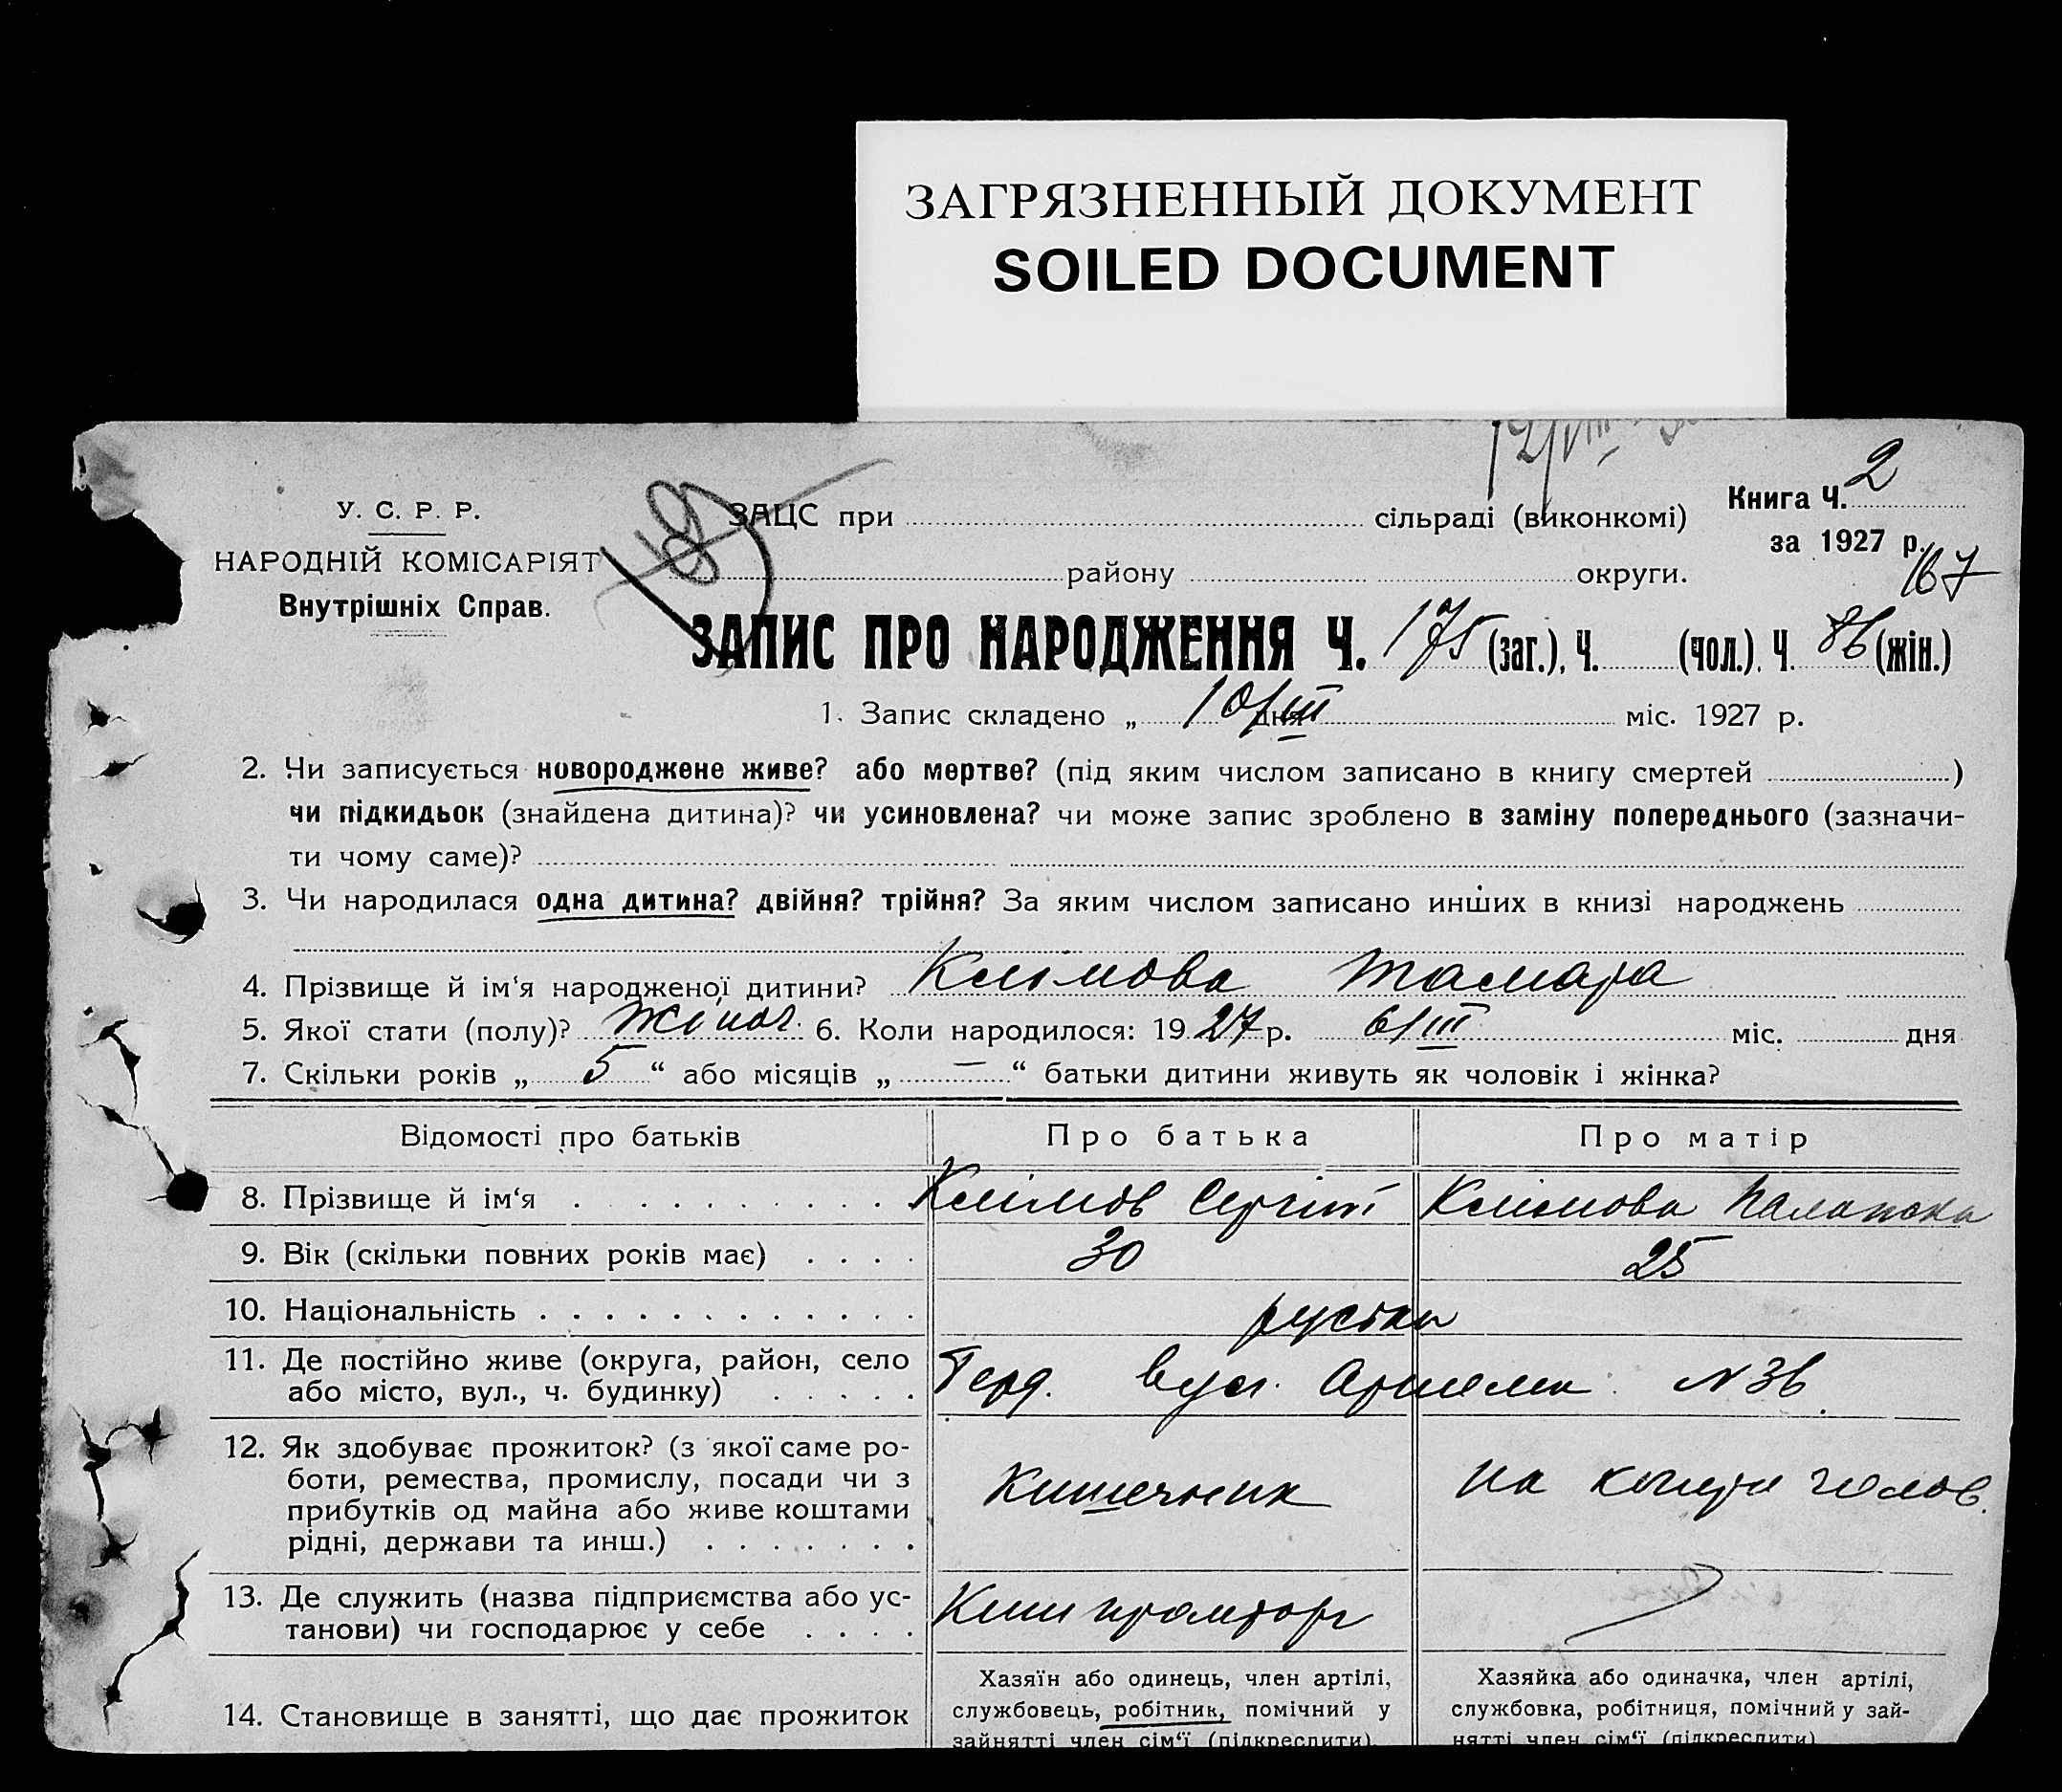 ЗАГРЯЗНЕННЫЙ ДОКУМЕНТ
SOILED DOCUMENT
У. С. Р. Р.
НАРОДНІЙ КОМІСАРІЯТ
Внутрішніх Справ.
ЗАЦС при сільраді (виконкомі)
району округи.
Книга Ч. 2
за 1927 р.
167
ЗАПИС ПРО НАРОДЖЕННЯ Ч. 175 (заг.), Ч. (чол.), Ч. 86 (жін.)
1. Запис складено „ 10/III дня міс. 1927 р.
2. Чи записується новороджене живе? або мертве? (під яким числом записано в книгу смертей )
чи підкидьок (знайдена дитина)? чи усиновлена? чи може запис зроблено в заміну попереднього (зазначи-
ти чому саме)?
3. Чи народилася одна дитина? двійня? трійня? За яким числом записано инших в книзі народжень
4. Прізвище й ім'я народженої дитини? Клімова Тамара
5. Якої стати (полу)? Жіноч. 6. Коли народилося: 1927 р. 6/III міс. дня
7. Скільки років „ 5 “ або місяців „ — “ батьки дитини живуть як чоловік і жінка?
Відомості про батьків Про батька Про матір
8. Прізвище й ім'я Клімов Сергій Клімова
9. Вік (скільки повних років має) 30 25
10. Національність
11. Де постійно живе (округа, район, село
або місто, вул., ч. будинку) вул. Артема N 36
12. Як здобуває прожиток? (з якої саме ро-
боти, ремества, промислу, посади чи з
прибутків од майна або живе коштами
рідні, держави та инш.)
Кишечник на кошти чолов.
13. Де служить (назва підприємства або ус-
танови) чи господарює у себе
14. Становище в занятті, що дає прожиток
Хазяїн або одинець, член артілі,
службовець, робітник, помічний у
зайнятті член сім'ї (підкреслити)
Хазяйка або одиначка, член артілі,
службовка, робітниця, помічний у зай-
нятті член сім'ї (підкреслити)